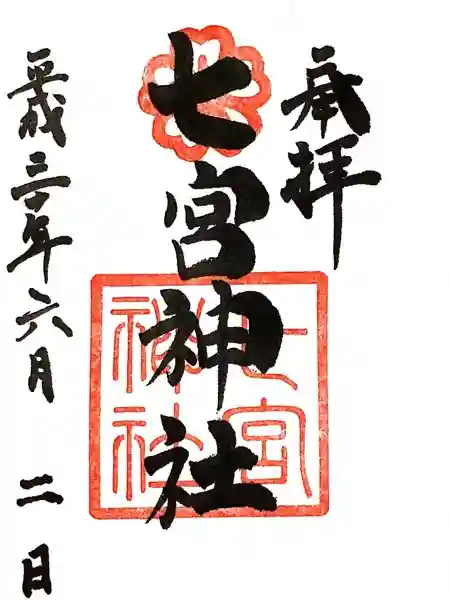 奉拝
七宮神社
七宮神社
平成三十年六月二日